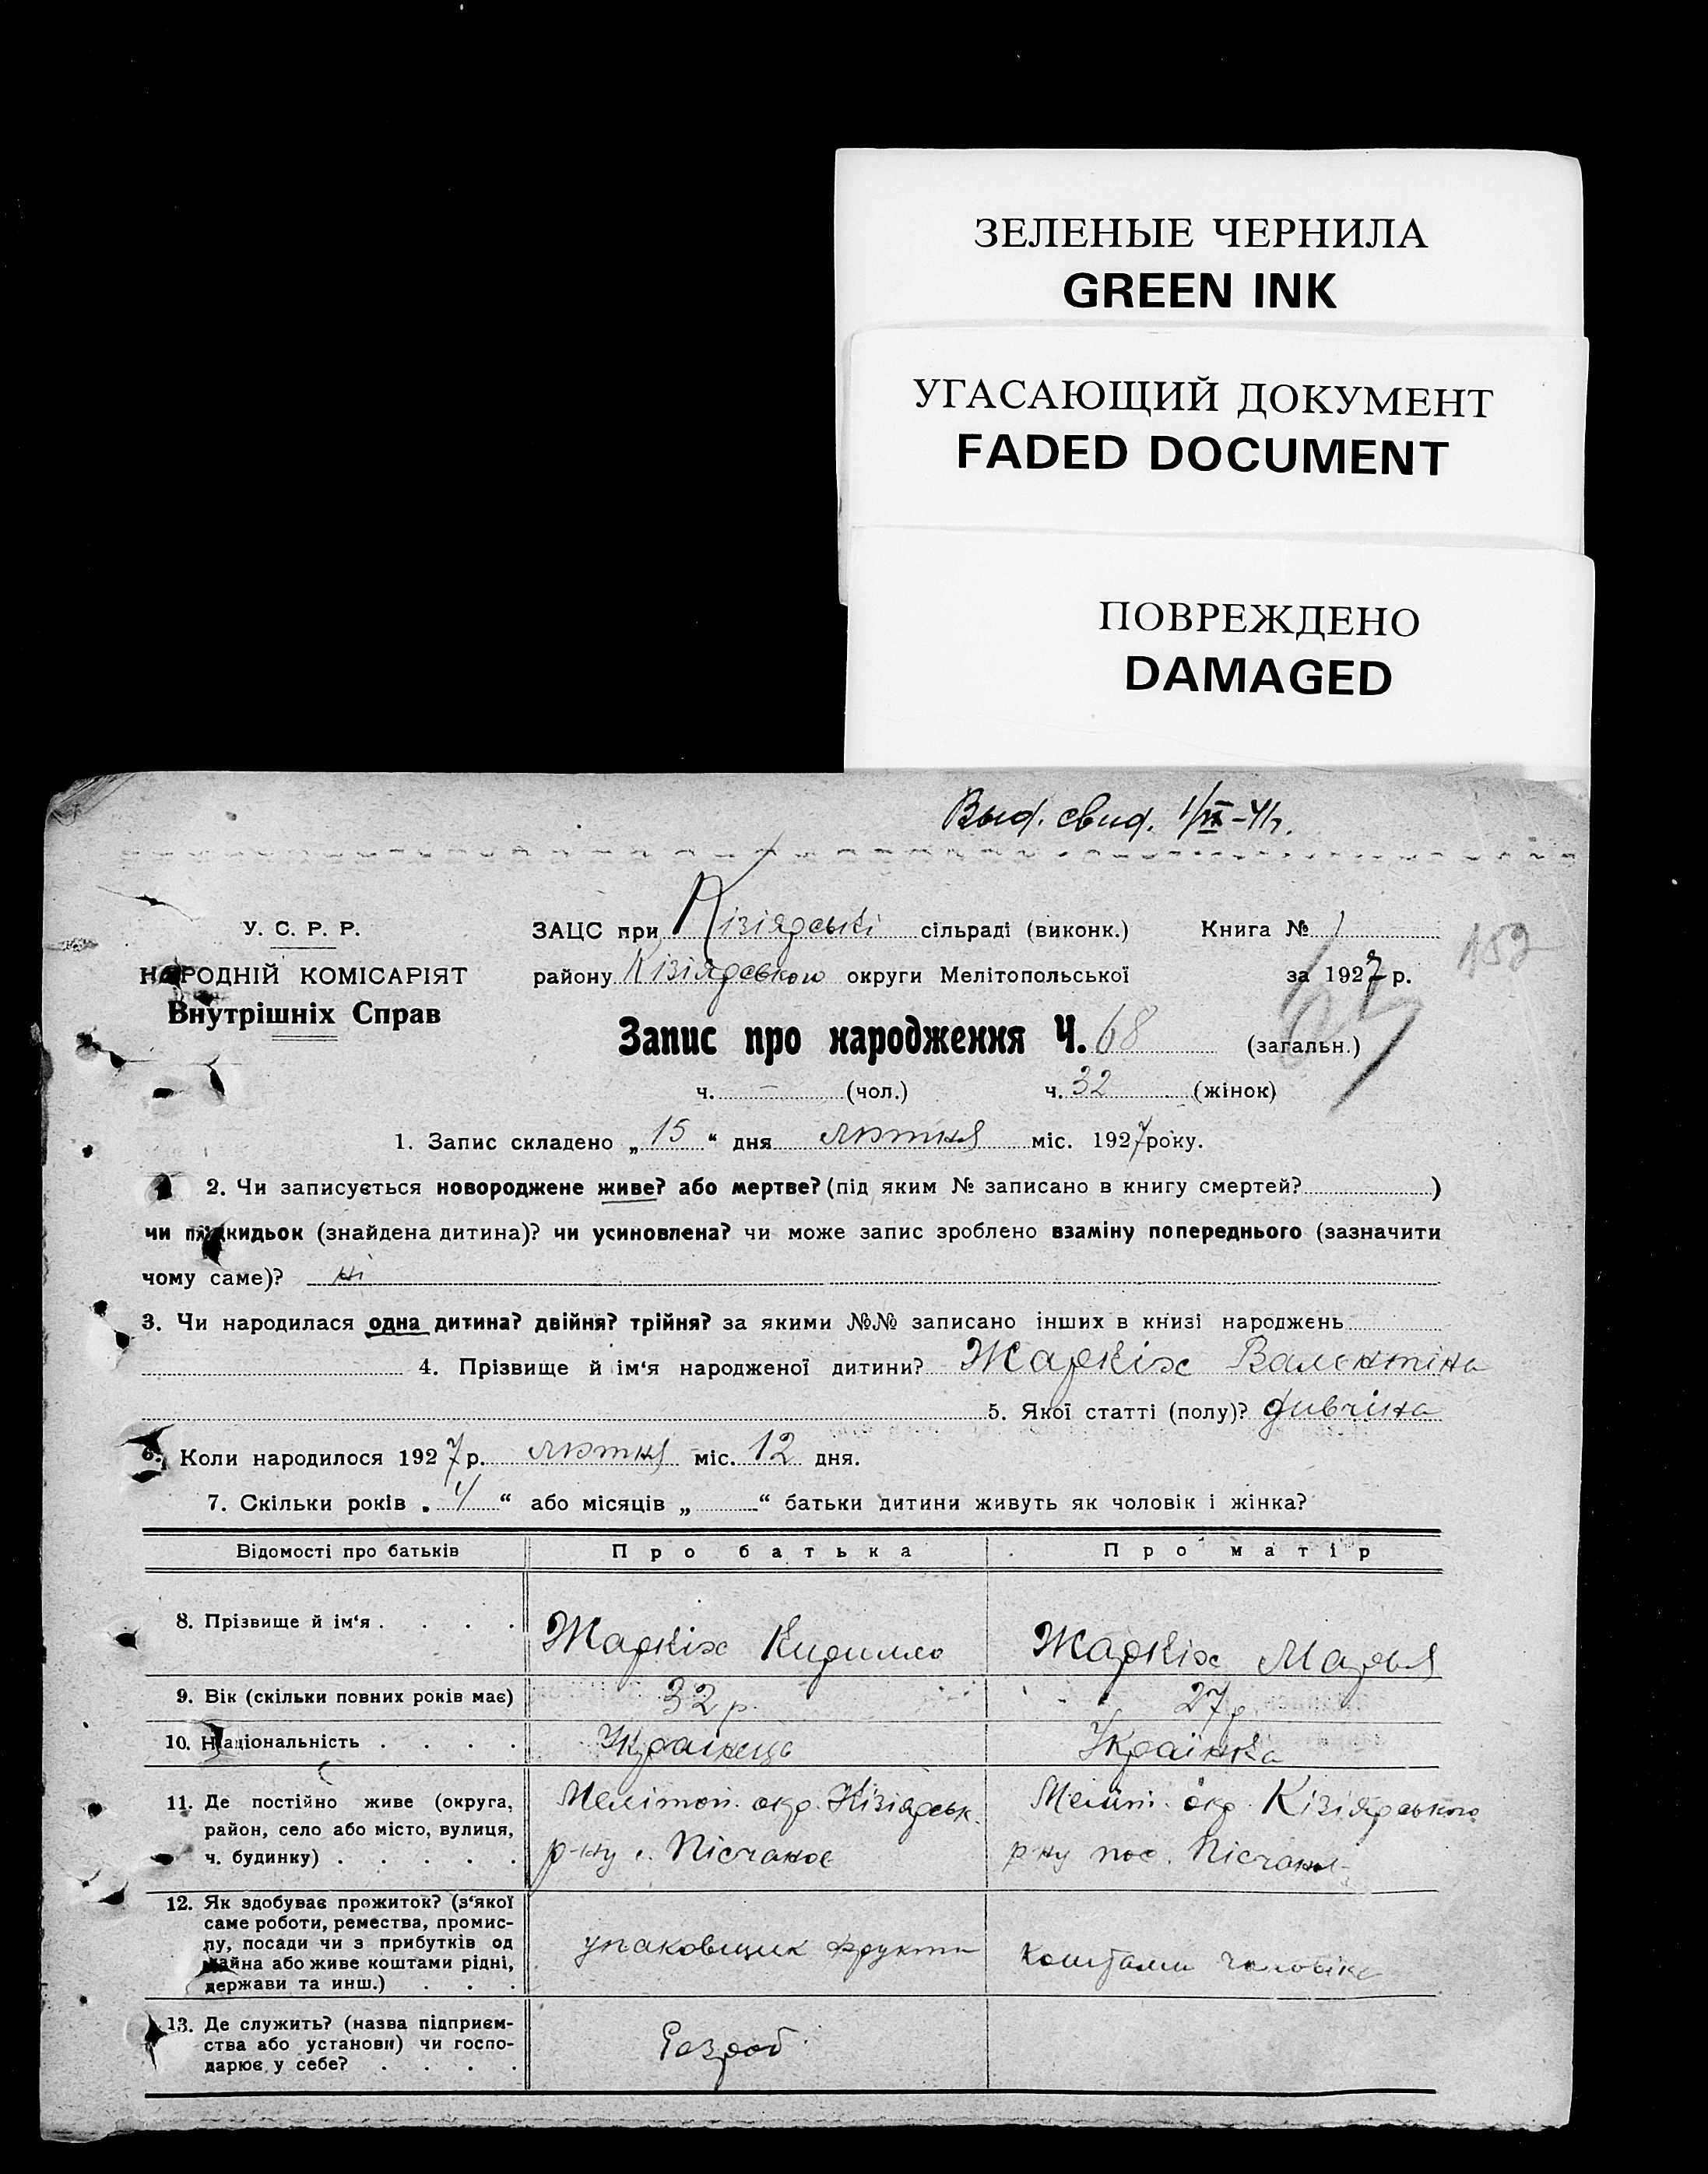 ЗЕЛЕНЫЕ ЧЕРНИЛА
GREEN INK
УГАСАЮЩИЙ ДОКУМЕНТ
FADED DOCUMENT
ПОВРЕЖДЕНО
DAMAGED
Выд. свид.
У. С. Р. Р.
НАРОДНІЙ КОМІСАРІЯТ
Внутрішніх Справ
ЗАЦС при Кізіярські сільраді (виконк.) Книга № 1
152
району Кізіярського округи Мелітопольської за 1927 р.
Запис про народження Ч. 68 (загальн.)
ч. — (чол.) ч. 32 (жінок)
1. Запис складено „ 15 “ дня лютня міс. 1927 року.
2. Чи записується новороджене живе? або мертве? (під яким № записано в книгу смертей? )
чи підкидьок (знайдена дитина)? чи усиновлена? чи може запис зроблено взаміну попереднього (зазначити
чому саме)? ні
3. Чи народилася одна дитина? двійня? трійня? за якими №№ записано інших в книзі народжень
4. Прізвище й ім‘я народженої дитини? Жаркіх Валентіна
5. Якої статті (полу)? дивчіна
6. Коли народилося 1927 р. лютня міс. 12 дня.
7. Скільки років „ 4 “ або місяців „ “ батьки дитини живуть як чоловік і жінка?
Відомості про батьків Про батька Про матір
8. Прізвище й ім‘я . . . . Жаркіх Кирилло Жаркіх Марья
9. Вік (скільки повних років має) 32 р. 27 р.
10. Національність . . . . Українець Українка
11. Де постійно живе (округа,
район, село або місто, вулиця,
ч. будинку) . . . . .
Мелітоп. окр. Кізіярськ.
р-ну с. Пісчаное
окр. Кізіярського
р-ну пос.
12. Як здобуває прожиток? (з‘якої
саме роботи, ремества, промис-
лу, посади чи з прибутків од
майна або живе коштами рідні,
держави та инш.) . . .
упаковщик фрукти
коштами чоловіка
13. Де служить? (назва підприєм-
ства або установи) чи госпо-
дарює у себе? . . . .